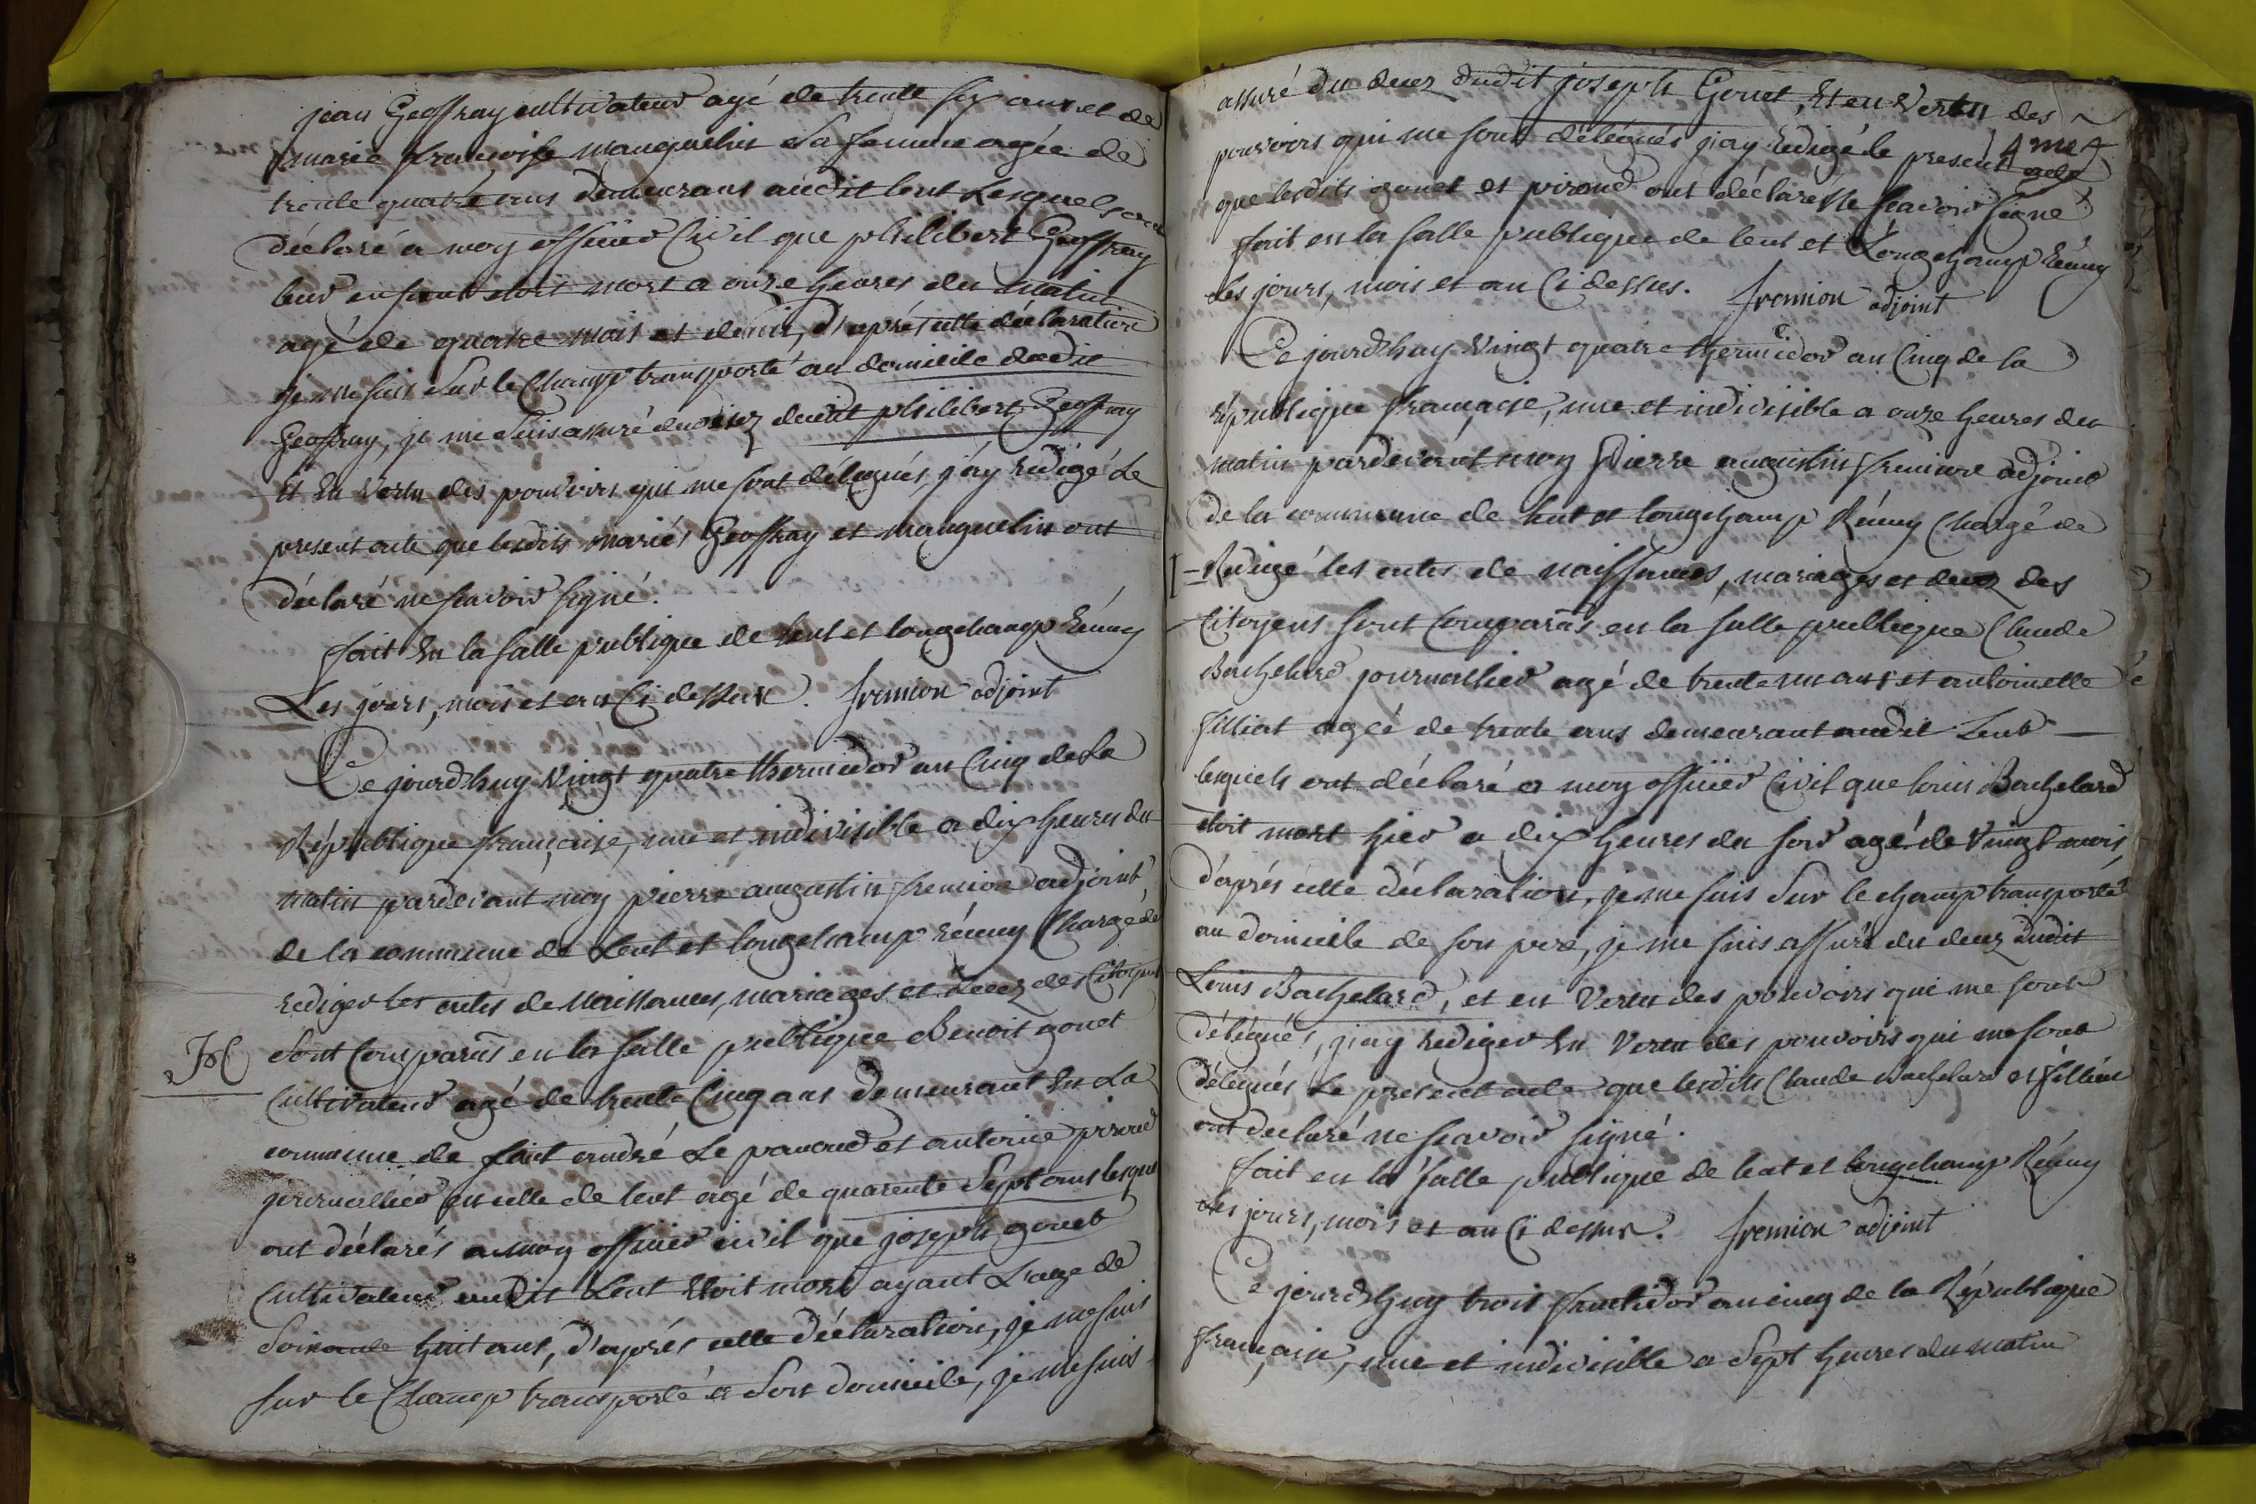 jean Geoffray cultivateur agé de trente six ans et de
marie francoise manguelin sa femme agée de
trente quatre ans demeurans audit lent Lesquels ont
déclaré a moy officier Civil que philibert Geoffray
leur enfant etoit mort a onze heures du matin
agé de quatre mois et demi, d'après cette déclaration
je me suis sur le Champ transporté au domicile dudit
Geoffray, je me suis assuré du decez dudit philibert Geoffray
Et En vertu des pouvoirs qui me sont délégués, j'ay redigé Le
present acte que lesdits mariés Geoffray et manguelin ont
déclaré ne scavoir signé.
fait En la salle publique de lent et longchamp Rémy
Les jours, mois et an Ci dessus. fremion adjoint
Ce jourdhuy Vingt quatre thermidor an Cinq de la
République française, une et indivisible a dix heures du
matin pardevant moy pierre augustin fremion adjoint
de la commune de Lent et longchamp Rémy Chargé de
rediger les actes de Naissances, mariages et decez des Citoyens
sont Comparus en la salle publique Benoit gonet
Cultivateur agé de trente Cinq ans demeurant En La
commune de saint andré Le panoud et antoine piroud
journallier en celle de lent agé de quarente Sept ans lesquels
ont déclarés a moy officier civil que joseph gonet
Cultivateur audit Lent Etoit mort ayant L'age de
Soixante huit ans, d'après cette déclaration, je me suis
sur le Champ transporté a son domicile, je me suis
assuré du decez dudit joseph Gonet, Et en Vertu des
pouvoirs qui me sont délégués j'ay redigé le present acte
4me
que lesdits gonet et piroud ont déclaré ne scavoir signé
fait en la salle publique de lent et Longchamp Rémy
les jours, mois et an Ci dessus. fremion adjoint
Ce jourdhuy Vingt quatre thermidor an Cinq de la
république française, une et indivisible a onze heures du
matin pardevant moy Pierre augustin fremion adjoint
de la commune de lent et longchamp Rémy Chargé de
Redigé les actes de naissances, mariages et decez des
Citoyens sont Comparus en la salle publique Claude
Bachelard journallier agé de trente un ans et antoinette
filliat agée de trente ans demeurant audit Lent
lesquels ont déclaré a moy officier Civil que louis Bachelard
etoit mort hier a dix heures du soir agé de Vingt mois,
d'après cette déclaration, je me suis sur le champ transporté
au domicile de son pere, je me suis assuré du decez dudit
Louis Bachelard, et en Vertu des pouvoirs qui me sont
délégués, j'ay rediger En Vertu des pouvoirs qui me sont
délégués Le present acte que lesdits Claude Bachelard et filliat
ont declaré ne scavoir signé.
fait en la salle publique de lent et longchamp Rémy
les jours, mois et an Ci dessus. fremion adjoint
Ce jourdhuy trois fructidor an cinq de la République
française, une et indivisible a Sept heures du matin